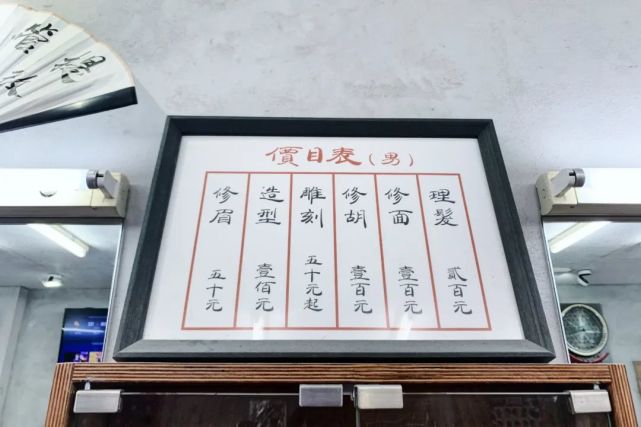 價目表(男)
理髮 貳百元
修面 壹百元
修胡 壹百元
雕刻 五十元起
造型 壹佰元
修眉 五十元